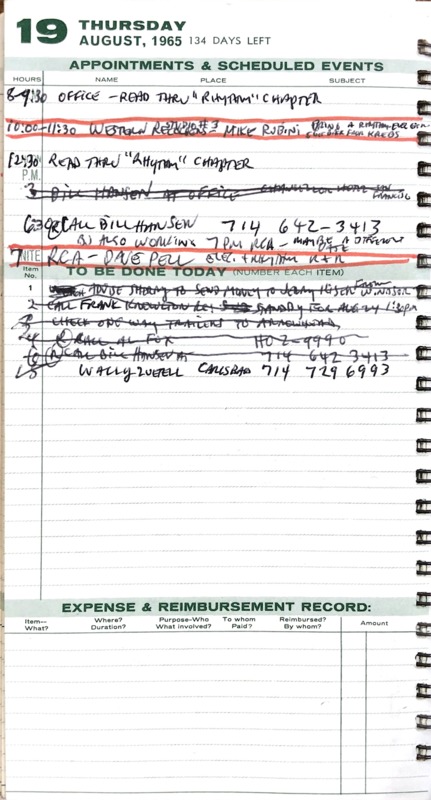 19 THURSDAY
AUGUST, 1965 134 DAYS LEFT
APPOINTMENTS & SCHEDULED EVENTS
HOURS NAME PLACE SUBJECT
8-9:30 OFFICE - READ THRU "RHYTHM" CHAPTER
10:00-11:30 WESTERN RECORDERS #3 MIKE RUBINI BRING
12:30 READ THRU "RHYTHM" CHAPTER
P.M.
3 BILL HANSEN AT OFFICE
6:30 CALL BILL HANSEN 714 642-3413
ALSO WORKING 7PM RCA - MAYBE A DIFFERENT DATE
7 NITE RCA - DAVE PELL ELEC. & RHYTHM R & R
Item No. TO BE DONE TODAY (NUMBER EACH ITEM)
1 ADVISE TO SEND MONEY TO FROM WINDSOR
2 CALL FRANK KNOWLTON SANDY FOR AUG 24 1:30PM
3 CHECK ONE WAY TRAILERS TO ARROWHEAD
4 CALL AL FOX HO 2-9990
CALL BILL HANSEN 714 642 3413
5 WALLY CARLSBAD 714 729 6993
EXPENSE & REIMBURSEMENT RECORD:
Item— What? Where? Duration? Purpose-Who What involved? To whom Paid? Reimbursed? By whom? Amount